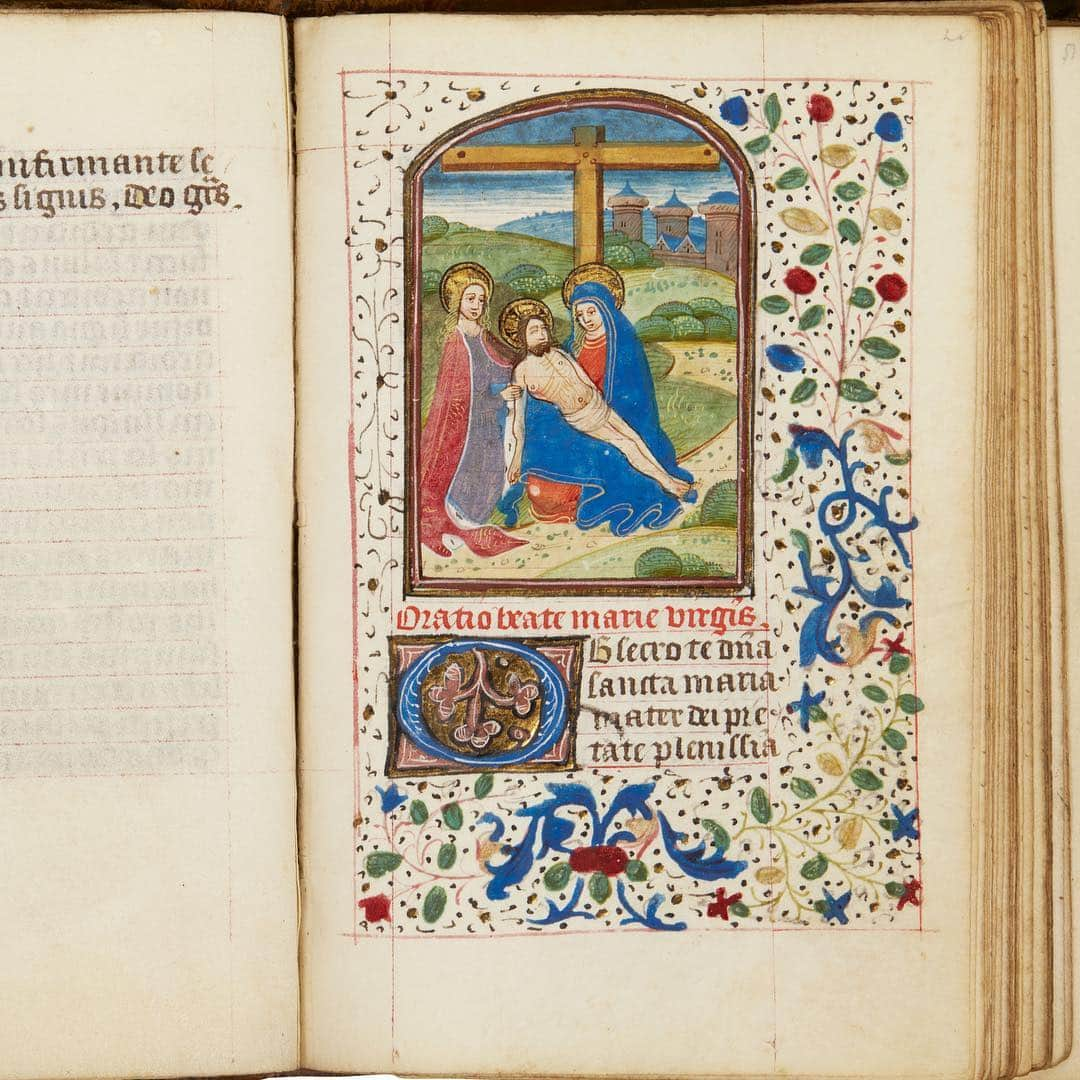 onfirmante se
s signis, deo grs.
Oratio beate marie virgis.
Obsecro te dña
sancta maria
mater dei pie-
tate plenissia